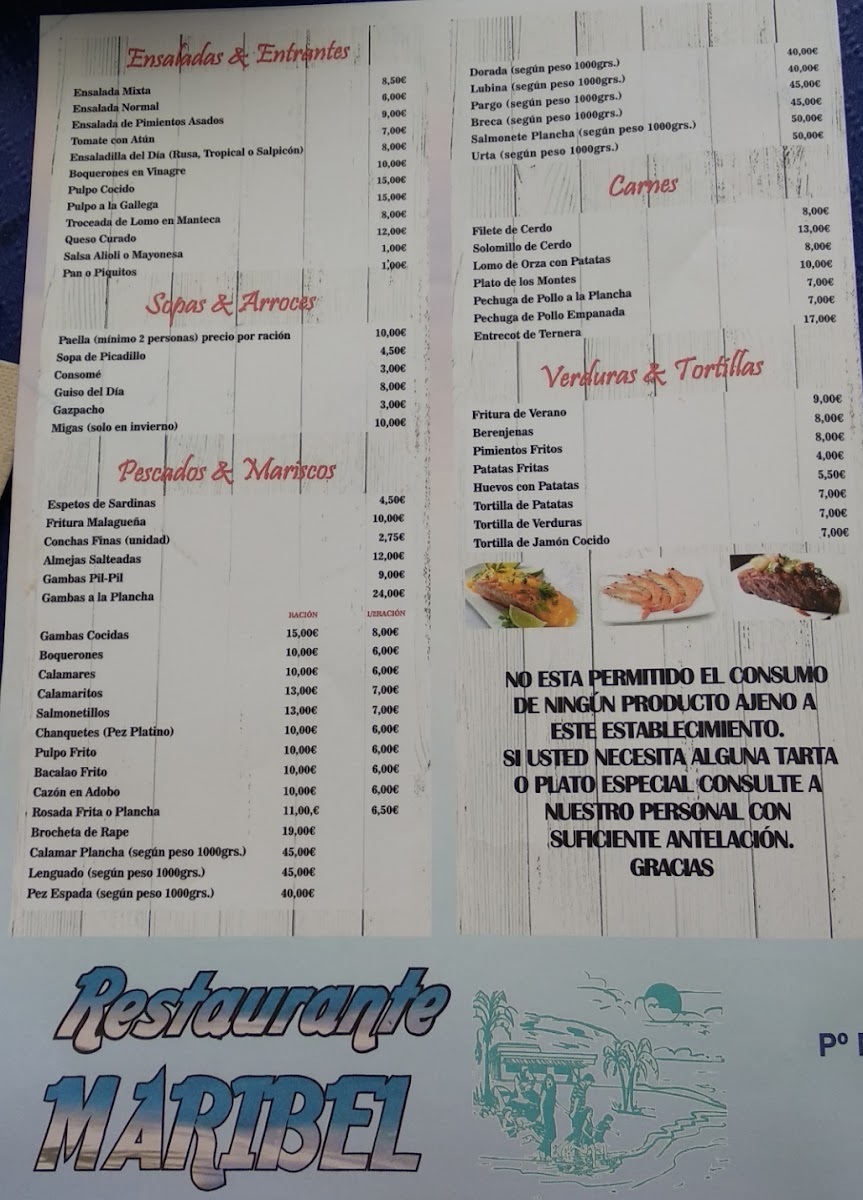 Ensaladas & Entrantes
Ensalada Mixta 8,50€
Ensalada Normal 6,00€
Ensalada de Pimientos Asados 9,00€
Tomate con Atún 7,00€
Ensaladilla del Día (Rusa, Tropical o Salpicón) 8,00€
Boquerones en Vinagre 10,00€
Pulpo Cocido 15,00€
Pulpo a la Gallega 15,00€
Troceada de Lomo en Manteca 8,00€
Queso Curado 12,00€
Salsa Alioli o Mayonesa 1,00€
Pan o Piquitos 1,00€
Sopas & Arroces
Paella (mínimo 2 personas) precio por ración 10,00€
Sopa de Picadillo 4,50€
Consomé 3,00€
Guiso del Día 8,00€
Gazpacho 3,00€
Migas (solo en invierno) 10,00€
Pescados & Mariscos
Espetos de Sardinas 4,50€
Fritura Malagueña 10,00€
Conchas Finas (unidad) 2,75€
Almejas Salteadas 12,00€
Gambas Pil-Pil 9,00€
Gambas a la Plancha 24,00€
RACIÓN 1/2RACIÓN
Gambas Cocidas 15,00€ 8,00€
Boquerones 10,00€ 6,00€
Calamares 10,00€ 6,00€
Calamaritos 13,00€ 7,00€
Salmonetillos 13,00€ 7,00€
Chanquetes (Pez Platino) 10,00€ 6,00€
Pulpo Frito 10,00€ 6,00€
Bacalao Frito 10,00€ 6,00€
Cazón en Adobo 10,00€ 6,00€
Rosada Frita o Plancha 11,00,€ 6,50€
Brocheta de Rape 19,00€
Calamar Plancha (según peso 1000grs.) 45,00€
Lenguado (según peso 1000grs.) 45,00€
Pez Espada (según peso 1000grs.) 40,00€
Dorada (según peso 1000grs.) 40,00€
Lubina (según peso 1000grs.) 40,00€
Pargo (según peso 1000grs.) 45,00€
Breca (según peso 1000grs.) 45,00€
Salmonete Plancha (según peso 1000grs.) 50,00€
Urta (según peso 1000grs.) 50,00€
Carnes
Filete de Cerdo 8,00€
Solomillo de Cerdo 13,00€
Lomo de Orza con Patatas 8,00€
Plato de los Montes 10,00€
Pechuga de Pollo a la Plancha 7,00€
Pechuga de Pollo Empanada 7,00€
Entrecot de Ternera 17,00€
Verduras & Tortillas
Fritura de Verano 9,00€
Berenjenas 8,00€
Pimientos Fritos 8,00€
Patatas Fritas 4,00€
Huevos con Patatas 5,50€
Tortilla de Patatas 7,00€
Tortilla de Verduras 7,00€
Tortilla de Jamón Cocido 7,00€
NO ESTA PERMITIDO EL CONSUMO
DE NINGÚN PRODUCTO AJENO A
ESTE ESTABLECIMIENTO.
SI USTED NECESITA ALGUNA TARTA
O PLATO ESPECIAL CONSULTE A
NUESTRO PERSONAL CON
SUFICIENTE ANTELACIÓN.
GRACIAS
Restaurante
MARIBEL
Pº